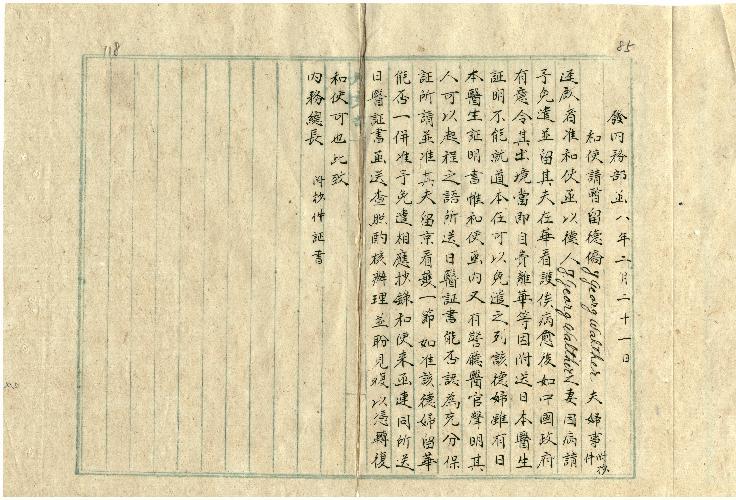 85
118
發內務部函 八年二月二十一日
和使請暫留德僑 J Georg Walther 夫婦事 附抄件
逕啟者准和使函以德人 J Georg Walther 之妻因病請
予免遣並留其夫在華看護俟病愈後如中國政府
有意令其出境當即自費離華等因附送日本醫生
証明不能就道本在可以免遣之列該德婦雖有日
本醫生証明書惟和使函內又有警廳醫官聲明其
人可以起程之語所送日醫証書能否認為充分保
証所請並准其夫留京看護一節如准該德婦留華
能否一併准予免遣相應抄錄和使來函連同所送
日醫証書函送查照酌核辦理並盼見復以憑轉復
和使可也此致
內務總長 附抄件証書